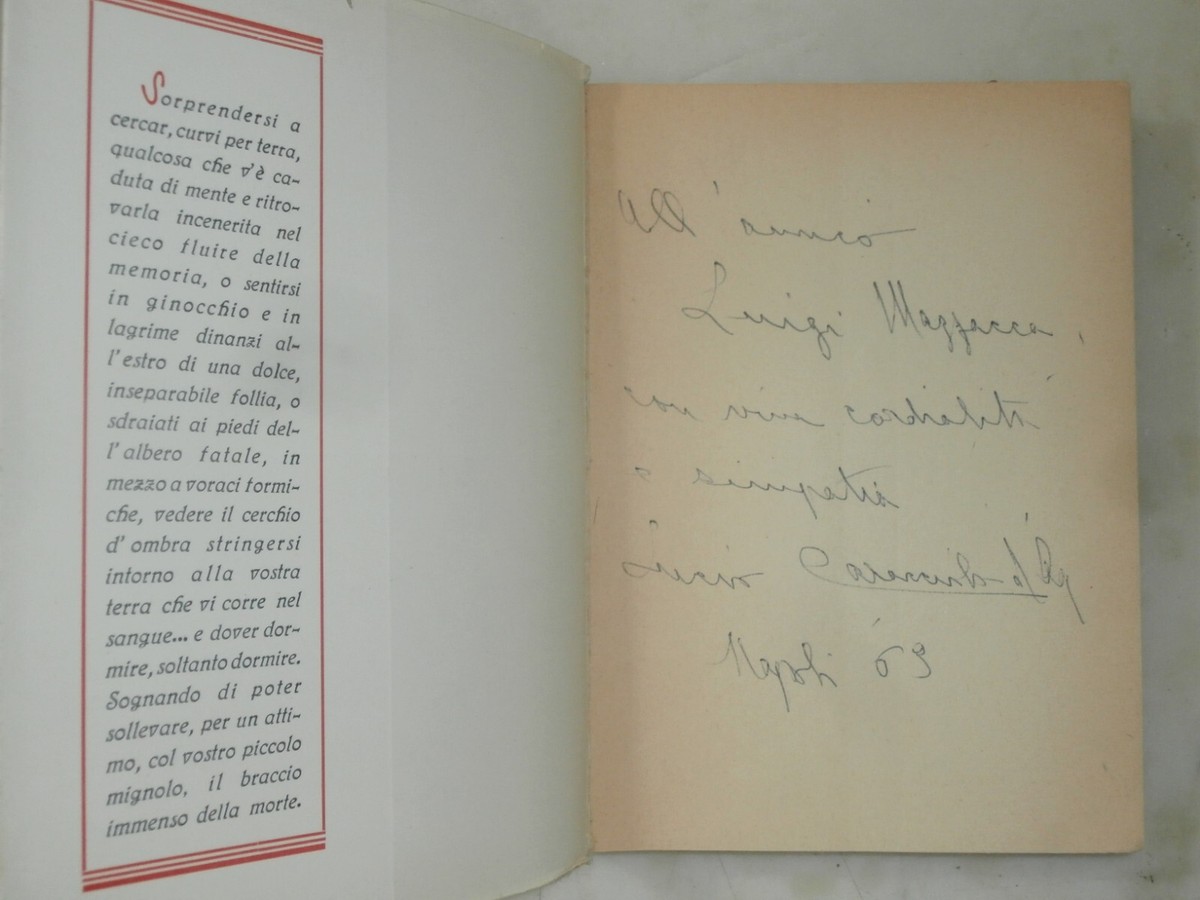 Sorprendersi a
cercar, curvi per terra,
qualcosa che v'è ca-
duta di mente e ritro-
varla incenerita nel
cieco fluire della
memoria, o sentirsi
in ginocchio e in
lagrime dinanzi al-
l'estro di una dolce,
inseparabile follia, o
sdraiati ai piedi del-
l'albero fatale, in
mezzo a voraci formi-
che, vedere il cerchio
d'ombra stringersi
intorno alla vostra
terra che vi corre nel
sangue... e dover dor-
mire, soltanto dormire.
Sognando di poter
sollevare, per un atti-
mo, col vostro piccolo
mignolo, il braccio
immenso della morte.
All'amico
Luigi Mazzacca,
con viva cordialità
e simpatia
Lucio
Napoli 69